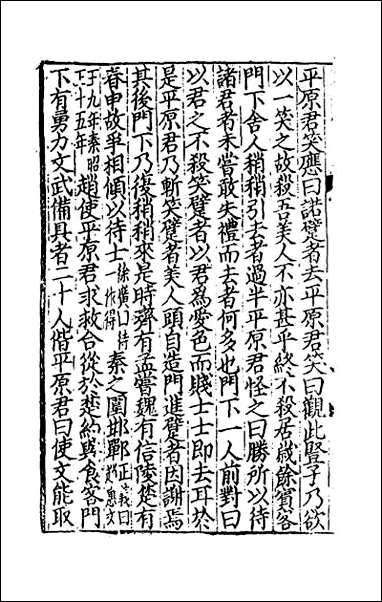 平原君笑應曰諾躄者去平原君笑曰觀此豎子乃欲
以一笑之故殺吾美人不亦甚乎終不殺居歲餘賓客
門下舍人稍稍引去者過半平原君怪之曰勝所以待
諸君者未嘗敢失禮而去者何多也門下一人前對曰
以君之不殺笑躄者以君為愛色而賤士士即去耳於
是平原君乃斬笑躄者美人頭自造門進躄者因謝焉
其後門下乃復稍稍來是時齊有孟嘗魏有信陵楚有
春申故爭相傾以待士徐廣曰待一作得秦之圍邯鄲正義曰趙惠文
王九年秦昭王十五年趙使平原君求救合從於楚約與食客門
下有勇力文武備具者二十人偕平原君曰使文能取